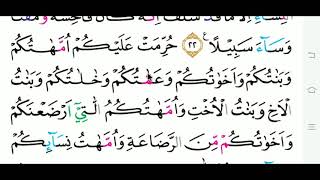 النِّسَاۤءِ اِلَّا مَا قَدْ سَلَفَ اِنَّهٗ كَانَ فَاحِشَةً وَّمَقْتًا
وَسَاۤءَ سَبِيْلًا ࣖ ٢٢ حُرِّمَتْ عَلَيْكُمْ اُمَّهٰتُكُمْ
وَبَنٰتُكُمْ وَاَخَوٰتُكُمْ وَعَمّٰتُكُمْ وَخٰلٰتُكُمْ وَبَنٰتُ
الْاَخِ وَبَنٰتُ الْاُخْتِ وَاُمَّهٰتُكُمُ الّٰتِيْٓ اَرْضَعْنَكُمْ
وَاَخَوٰتُكُمْ مِّنَ الرَّضَاعَةِ وَاُمَّهٰتُ نِسَاۤىِٕكُمْ